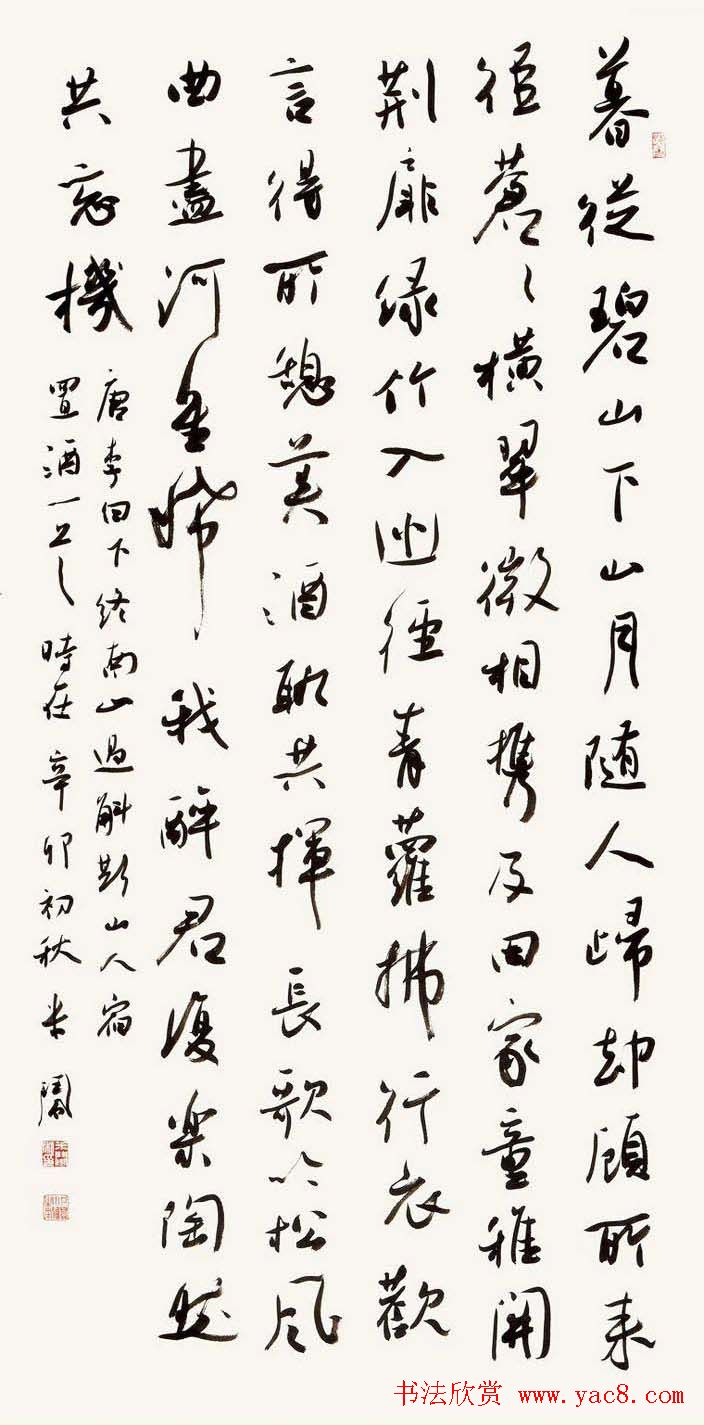 暮從碧山下山月随人歸却顧所来
徑蒼々横翠微相携及田家童稚開
荆扉緑竹入幽徑青蘿拂行衣歡
言得所憩美酒聊共揮長歌吟松風
曲盡河星稀我醉君復樂陶然
共忘機
唐李白下終南山過斛斯山人宿
置酒一首時在辛卯初秋
书法欣赏 www.yac8.com